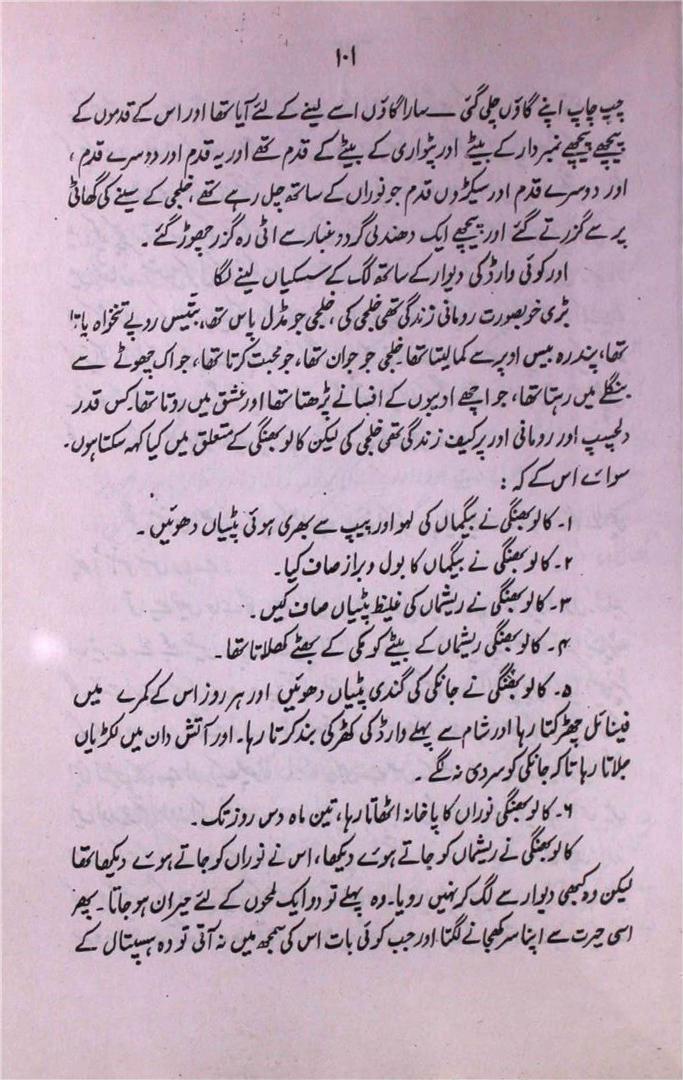 ۱۰۱
چپ چاپ اپنے گاؤں چلی گئی ــــ سارا گاؤں اسے لینے کے لئے آیا تھا اور اس کے قدموں کے
پیچھے پیچھے نمبردار کے بیٹے اور پٹواری کے بیٹے کے قدم تھے اور یہ قدم اور دوسرے قدم ،
اور دوسرے قدم اور سیکڑوں قدم جو نوراں کے ساتھ چل رہے تھے ، خلجی کے سینے کی گھاٹی
پر سے گزرتے گئے اور پیچھے ایک دھندلی گرد و غبار سے اٹی رہ گزر چھوڑ گئے ۔
اور کوئی وارڈ کی دیوار کے ساتھ لگ کے سسکیاں لینے لگا
بڑی خوبصورت رومانی زندگی تھی خلجی کی ، خلجی جو مڈل پاس تھا ، بتیس روپے تنخواہ پاتا
تھا ، پندرہ بیس اوپر سے کما لیتا تھا ۔ خلجی جو جوان تھا ، جو محبت کرتا تھا ، جو اک چھوٹے سے
بنگلے میں رہتا تھا ، جو اچھے ادیبوں کے افسانے پڑھتا تھا اور عشق میں روتا تھا ۔ کس قدر
دلچسپ اور رومانی اور پرکیف زندگی تھی خلجی کی لیکن کالو بھنگی کے متعلق میں کیا کہہ سکتا ہوں ۔
سوائے اس کے کہ :
۱۔ کالو بھنگی نے بیگماں کی لہو اور پیپ سے بھری ہوئی پٹیاں دھوئیں ۔
۲۔ کالو بھنگی نے بیگماں کا بول و براز صاف کیا ۔
۳۔ کالو بھنگی نے ریشماں کی غلیظ پٹیاں صاف کیں ۔
۴۔ کالو بھنگی ریشماں کے بیٹے کو مکی کے بھٹے کھلاتا تھا ۔
۵۔ کالو بھنگی نے جانکی کی گندی پٹیاں دھوئیں اور ہر روز اس کے کمرے میں
فینائل چھڑکتا رہا اور شام سے پہلے وارڈ کی کھڑکی بند کرتا رہا ۔ اور آتش دان میں لکڑیاں
جلاتا رہا تاکہ جانکی کو سردی نہ لگے ۔
۶۔ کالو بھنگی نوراں کا پاخانہ اٹھاتا رہا ، تین ماہ دس روز تک ۔
کالو بھنگی نے ریشماں کو جاتے ہوئے دیکھا ، اس نے نوراں کو جاتے ہوئے دیکھا تھا
لیکن وہ کبھی دیوار سے لگ کر نہیں رویا ۔ وہ پہلے تو دو ایک لمحوں کے لئے حیران ہو جاتا ۔ پھر
اسی حیرت سے اپنا سر کھجانے لگتا اور جب کوئی بات اس کی سمجھ میں نہ آتی تو وہ ہسپتال کے